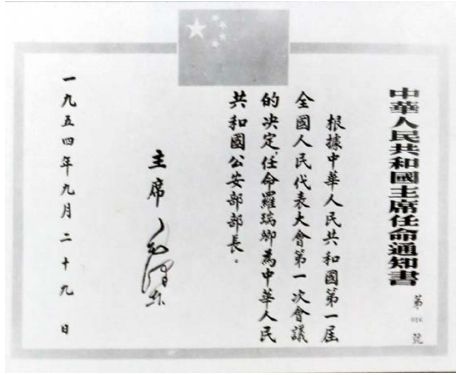 中華人民共和國主席任命通知書
第 號
根據中華人民共和國第一屆
全國人民代表大會第一次會議
的决定,任命羅瑞卿為中華人民
共和國公安部部長。
主席 毛澤東
一九五四年九月二十九日